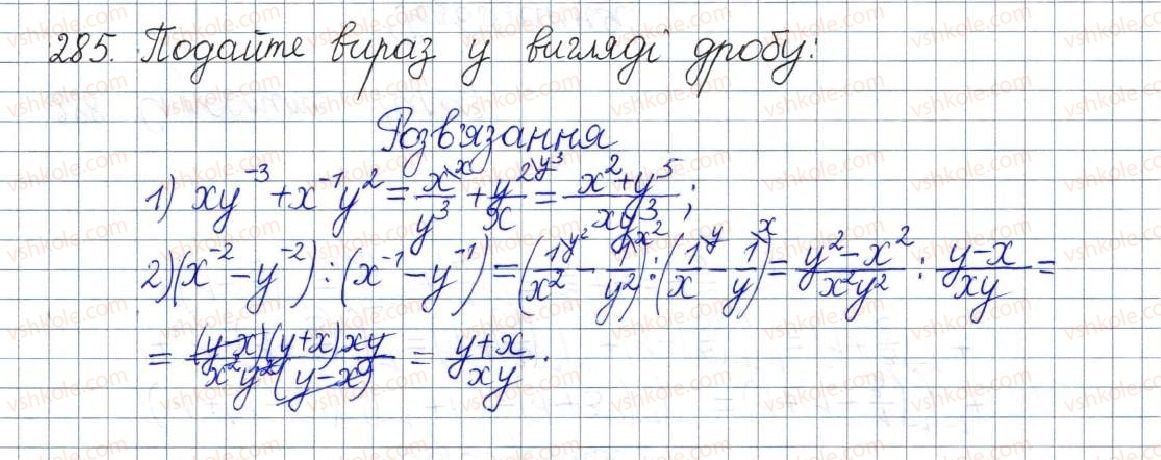 285. Подайте вираз у вигляді дробу:
Розв'язання
1) xy⁻³ + x⁻¹y² = x\ˣ/y³ + y²\ʸ³/x = (x²+y⁵)/(xy³);
2) (x⁻² - y⁻²) : (x⁻¹ - y⁻¹) = (1\ʸ²/x² - 1\ˣ²/y²) : (1\ʸ/x - 1\ˣ/y) = (y²-x²)/(x²y²) : (y-x)/(xy) =
= (y-x)(y+x)xy/(x²y²(y-x)) = (y+x)/(xy).